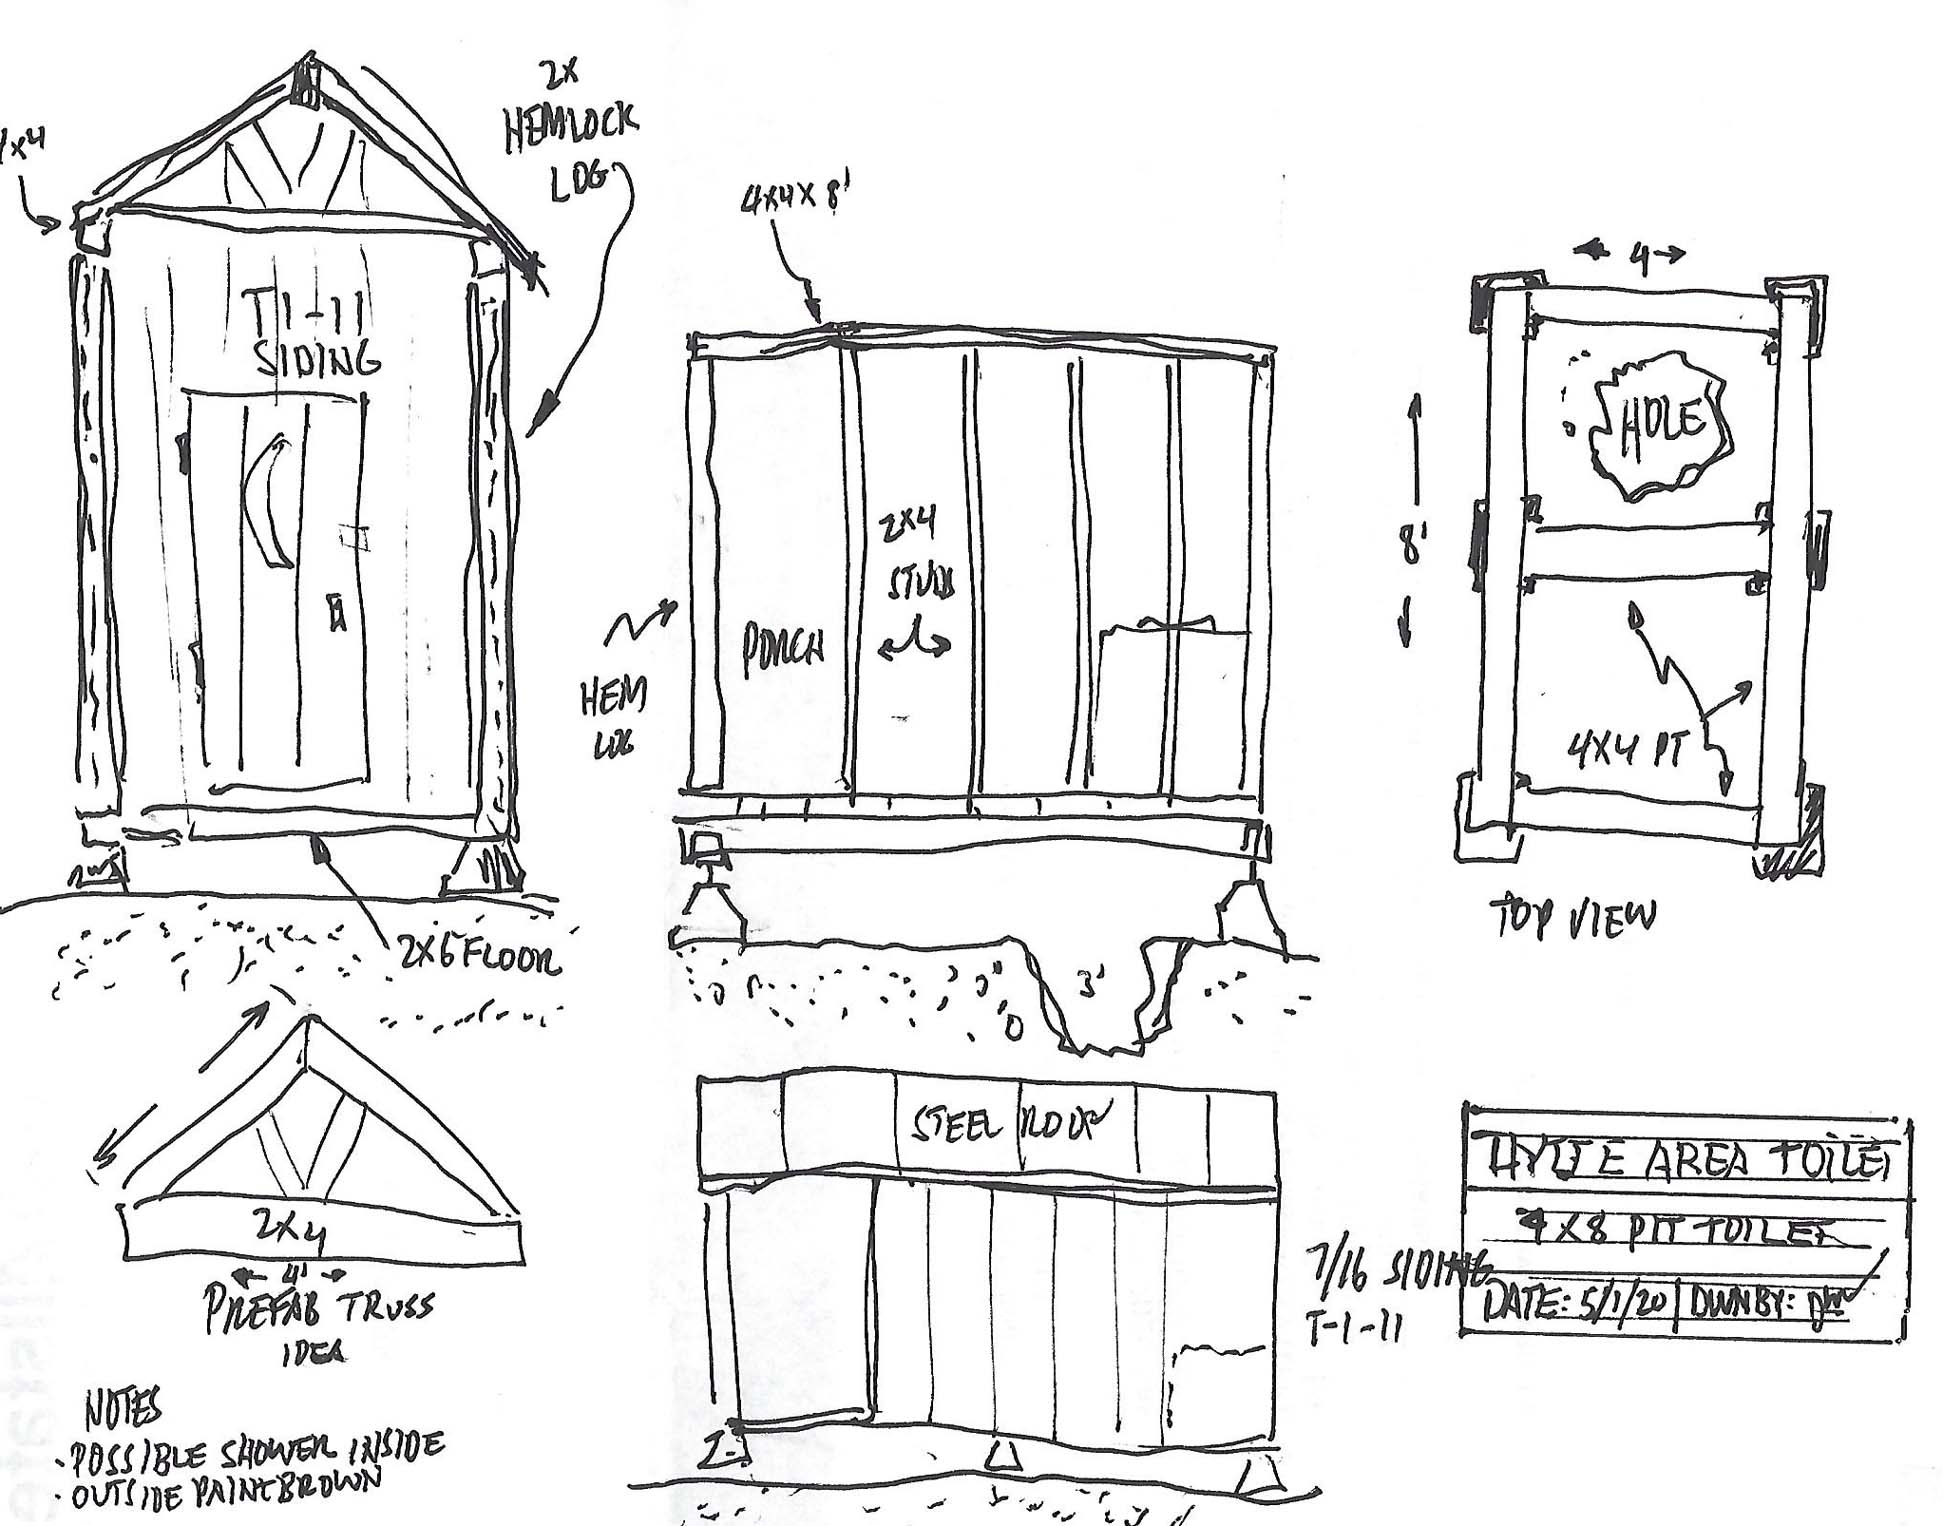 2X
HEMLOCK
LOG
4X4
T1-11
SIDING
2X6 FLOOR
4X4X8'
2X4
STUDS
PORCH
HEM
LOG
3'
4
HOLE
8'
4X4 PT
TOP VIEW
2X4
4'
PREFAB TRUSS
IDEA
NOTES
· POSSIBLE SHOWER INSIDE
· OUTSIDE PAINT BROWN
STEEL ROOF
7/16 SIDING
T-1-11
AREA TOILET
4X8 PIT TOILET
DATE: 5/1/20 | DWN BY: